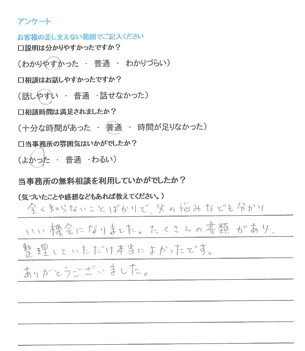 アンケート
お客様の差し支えない範囲でご記入ください
□説明は分かりやすかったですか？
（わかりやすかった ・ 普通 ・ わかりづらい）
□相談はお話しやすかったですか？
（話しやすい ・ 普通 ・話せなかった）
□相談時間は満足されましたか？
（十分な時間があった ・ 普通 ・ 時間が足りなかった）
□当事務所の雰囲気はいかがでしたか？
（よかった ・ 普通 ・わるい）
当事務所の無料相談を利用していかがでしたか？
（気づいたことや感想などもあれば教えてください。）
全く知らないことばかりで、父の悩みなども分かり
いい機会になりました。たくさんの書類があり、
整理していただけ本当によかったです。
ありがとうございました。